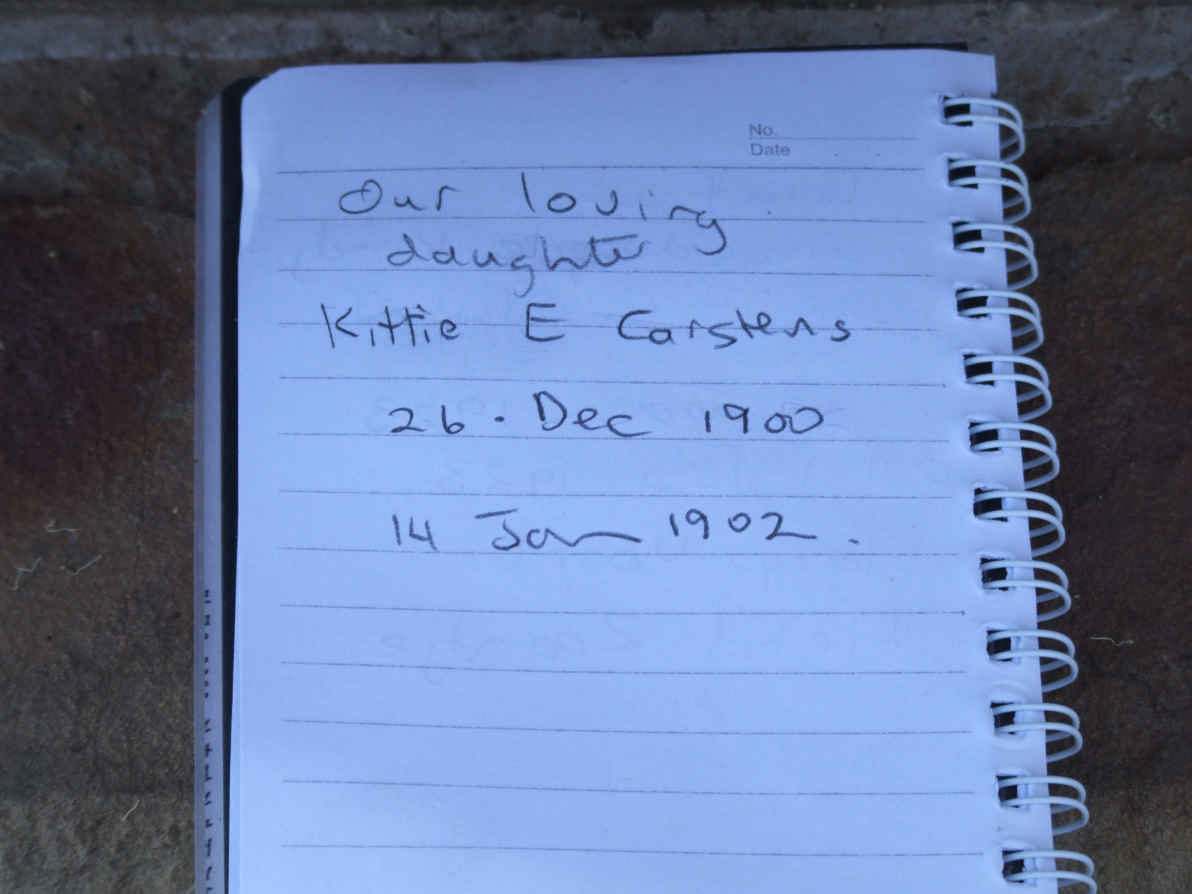 No.
Date
Our loving
daughter
Kittie E Carstens
26 · Dec 1900
14 Jan 1902.